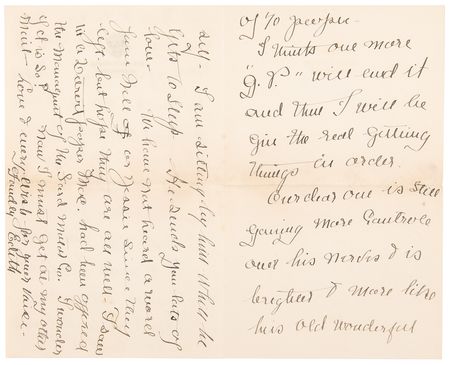 of 10 pages -
I think one more
"G. P." will end it
and then I will be
gin the real getting
things in order.
Our dear one is still
gaining more controll
over his nerves & is
brighter & more like
his old wonderful
self - I am sitting by him while he
gets to sleep He sends you lots of
love - We have not heard a word
from Nell or Jessie since they
left but hope they are all well - I saw
in a paper Mc. had been offered
the Managment of the Ford Motor Co. I wonder
if it is so? Now I must get at my other
mail - love & every wish for your
Fondly Edith